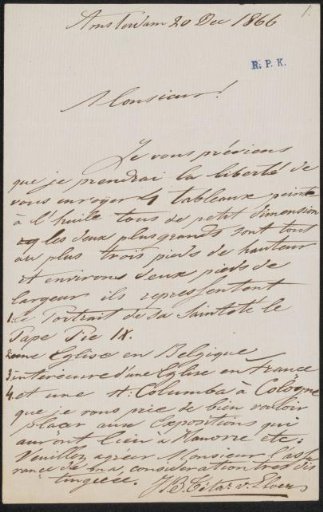 1
Amsterdam 20 Dec 1866
R. P. K.
Monsieur!
Je vous préviens
que je prendrai la liberté de
vous envoyer 4 tableaux peints
à l'huile tous de petit dimension
les deux plus grands sont tout
au plus trois pieds de hauteur
et environs deux pieds de
largeur ils representent
1. Le Portrait de Sa Sainteté le
Pape Pie IX.
2 une Eglise en Belgique
3 interieure d'une Eglise en France
4 et une St. Columba à Cologne
que je vous prie de bien vouloir
placer aux Expositions qui
auront lieu à Hanovre etc.
Veuillez agréer Monsieur l'assu
rance de ma consideration tres dis
tinguee.